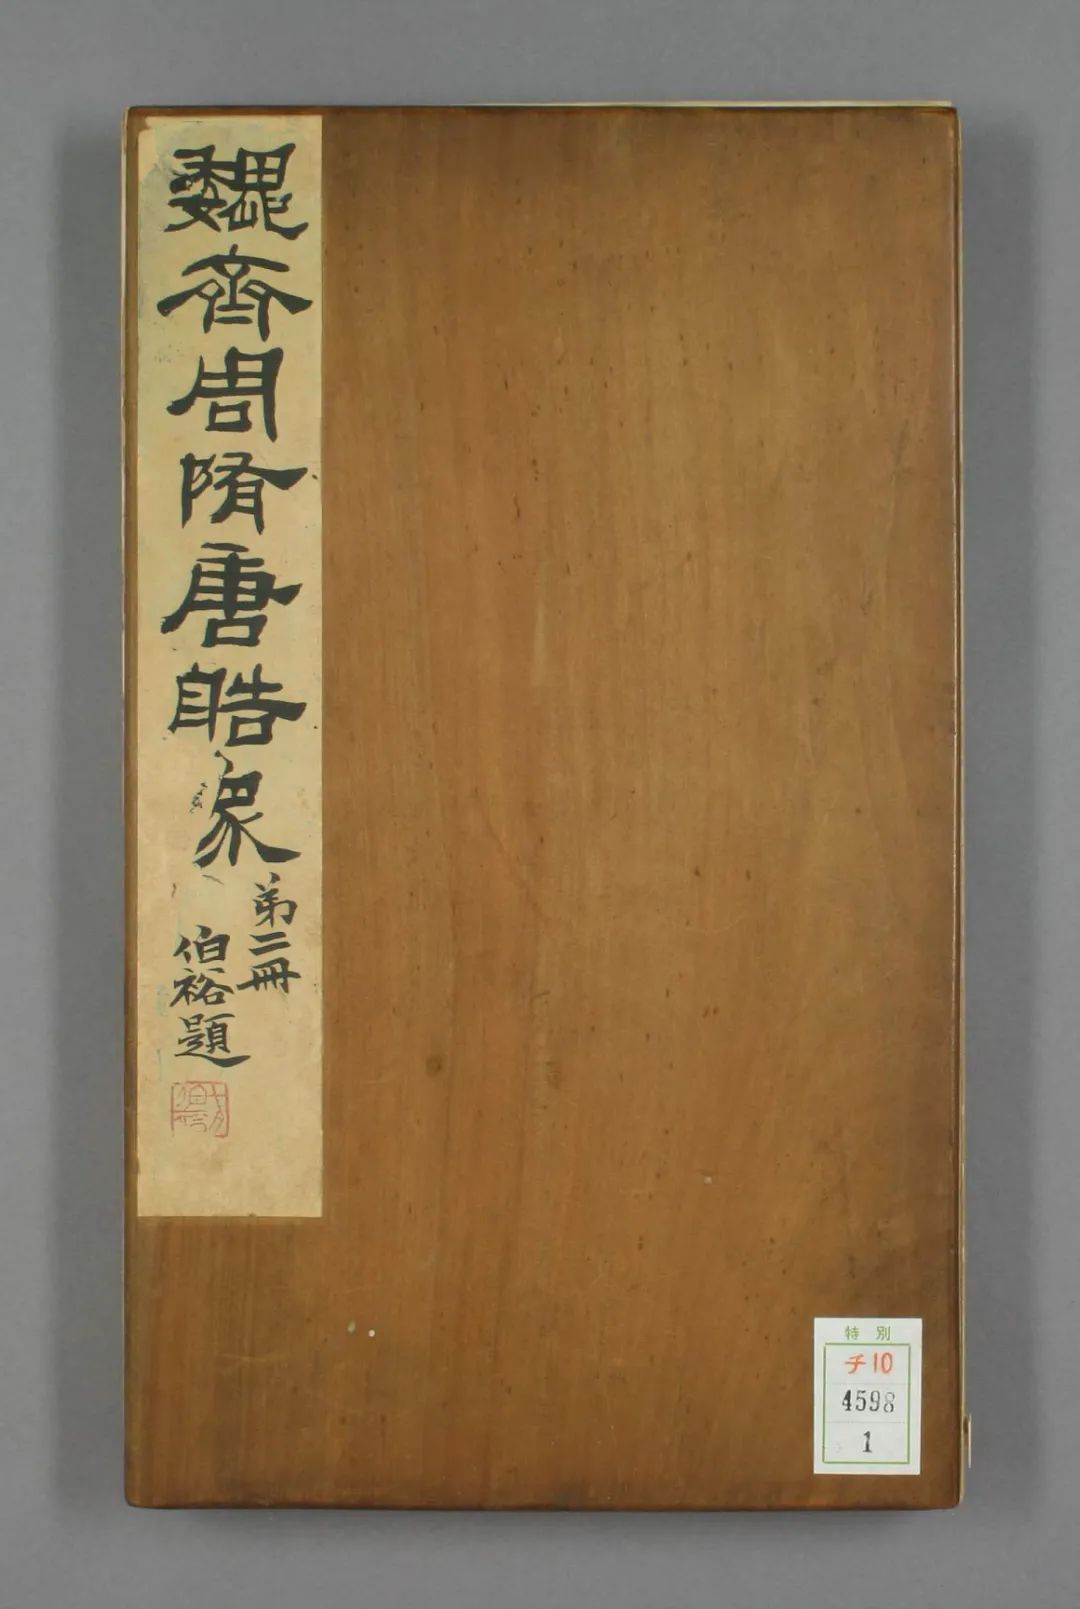 魏齊周隋唐艁象
弟二冊
伯裕題
特別
チ10
4598
1